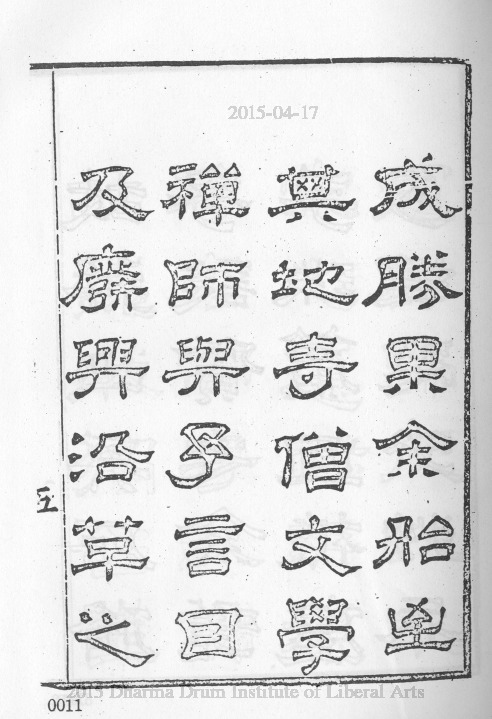 2015-04-17
成勝果余始至
其地寺僧文學
禪師與予言因
及廢興沿革之
五
2015 Dharma Drum Institute of Liberal Arts
0011